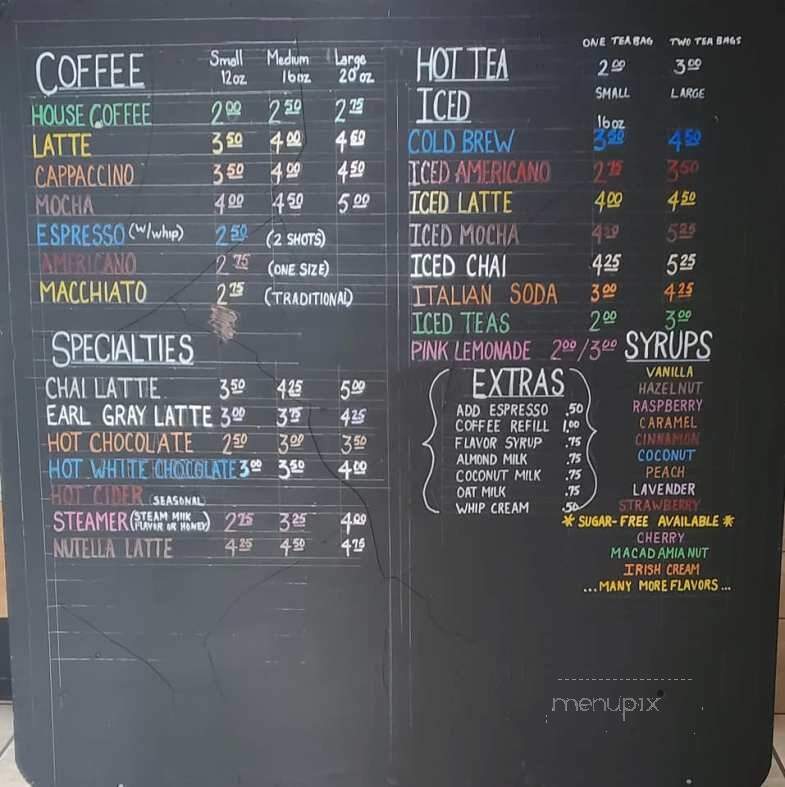 COFFEE Small 12oz Medium 16oz Large 20oz
HOUSE COFFEE 2.00 2.50 2.75
LATTE 3.50 4.00 4.60
CAPPACCINO 3.50 4.00 4.50
MOCHA 4.00 4.50 5.00
ESPRESSO (W/WHIP) 2.50 (2 SHOTS)
AMERICANO 2.75 (ONE SIZE)
MACCHIATO 2.75 (TRADITIONAL)
SPECIALTIES
CHAI LATTE 3.50 4.25 5.00
EARL GRAY LATTE 3.00 3.75 4.25
HOT CHOCOLATE 2.50 3.00 3.50
HOT WHITE CHOCOLATE 3.00 3.50 4.00
HOT CIDER (SEASONAL)
STEAMER (STEAM MILK FLAVOR OR HONEY) 2.75 3.25 4.00
NUTELLA LATTE 4.25 4.50 4.75
ONE TEA BAG TWO TEA BAGS
HOT TEA 2.00 3.00
ICED SMALL 16oz LARGE
COLD BREW 3.50 4.50
ICED AMERICANO 2.75 3.50
ICED LATTE 4.00 4.50
ICED MOCHA 4.50 5.25
ICED CHAI 4.25 5.25
ITALIAN SODA 3.00 4.25
ICED TEAS 2.00 3.00
PINK LEMONADE 2.00/3.00
EXTRAS
ADD ESPRESSO .50
COFFEE REFILL 1.00
FLAVOR SYRUP .75
ALMOND MILK .75
COCONUT MILK .75
OAT MILK .75
WHIP CREAM .50
SYRUPS
VANILLA
HAZELNUT
RASPBERRY
CARAMEL
CINNAMON
COCONUT
PEACH
LAVENDER
STRAWBERRY
*SUGAR-FREE AVAILABLE*
CHERRY
MACADAMIA NUT
IRISH CREAM
...MANY MORE FLAVORS...
menupix